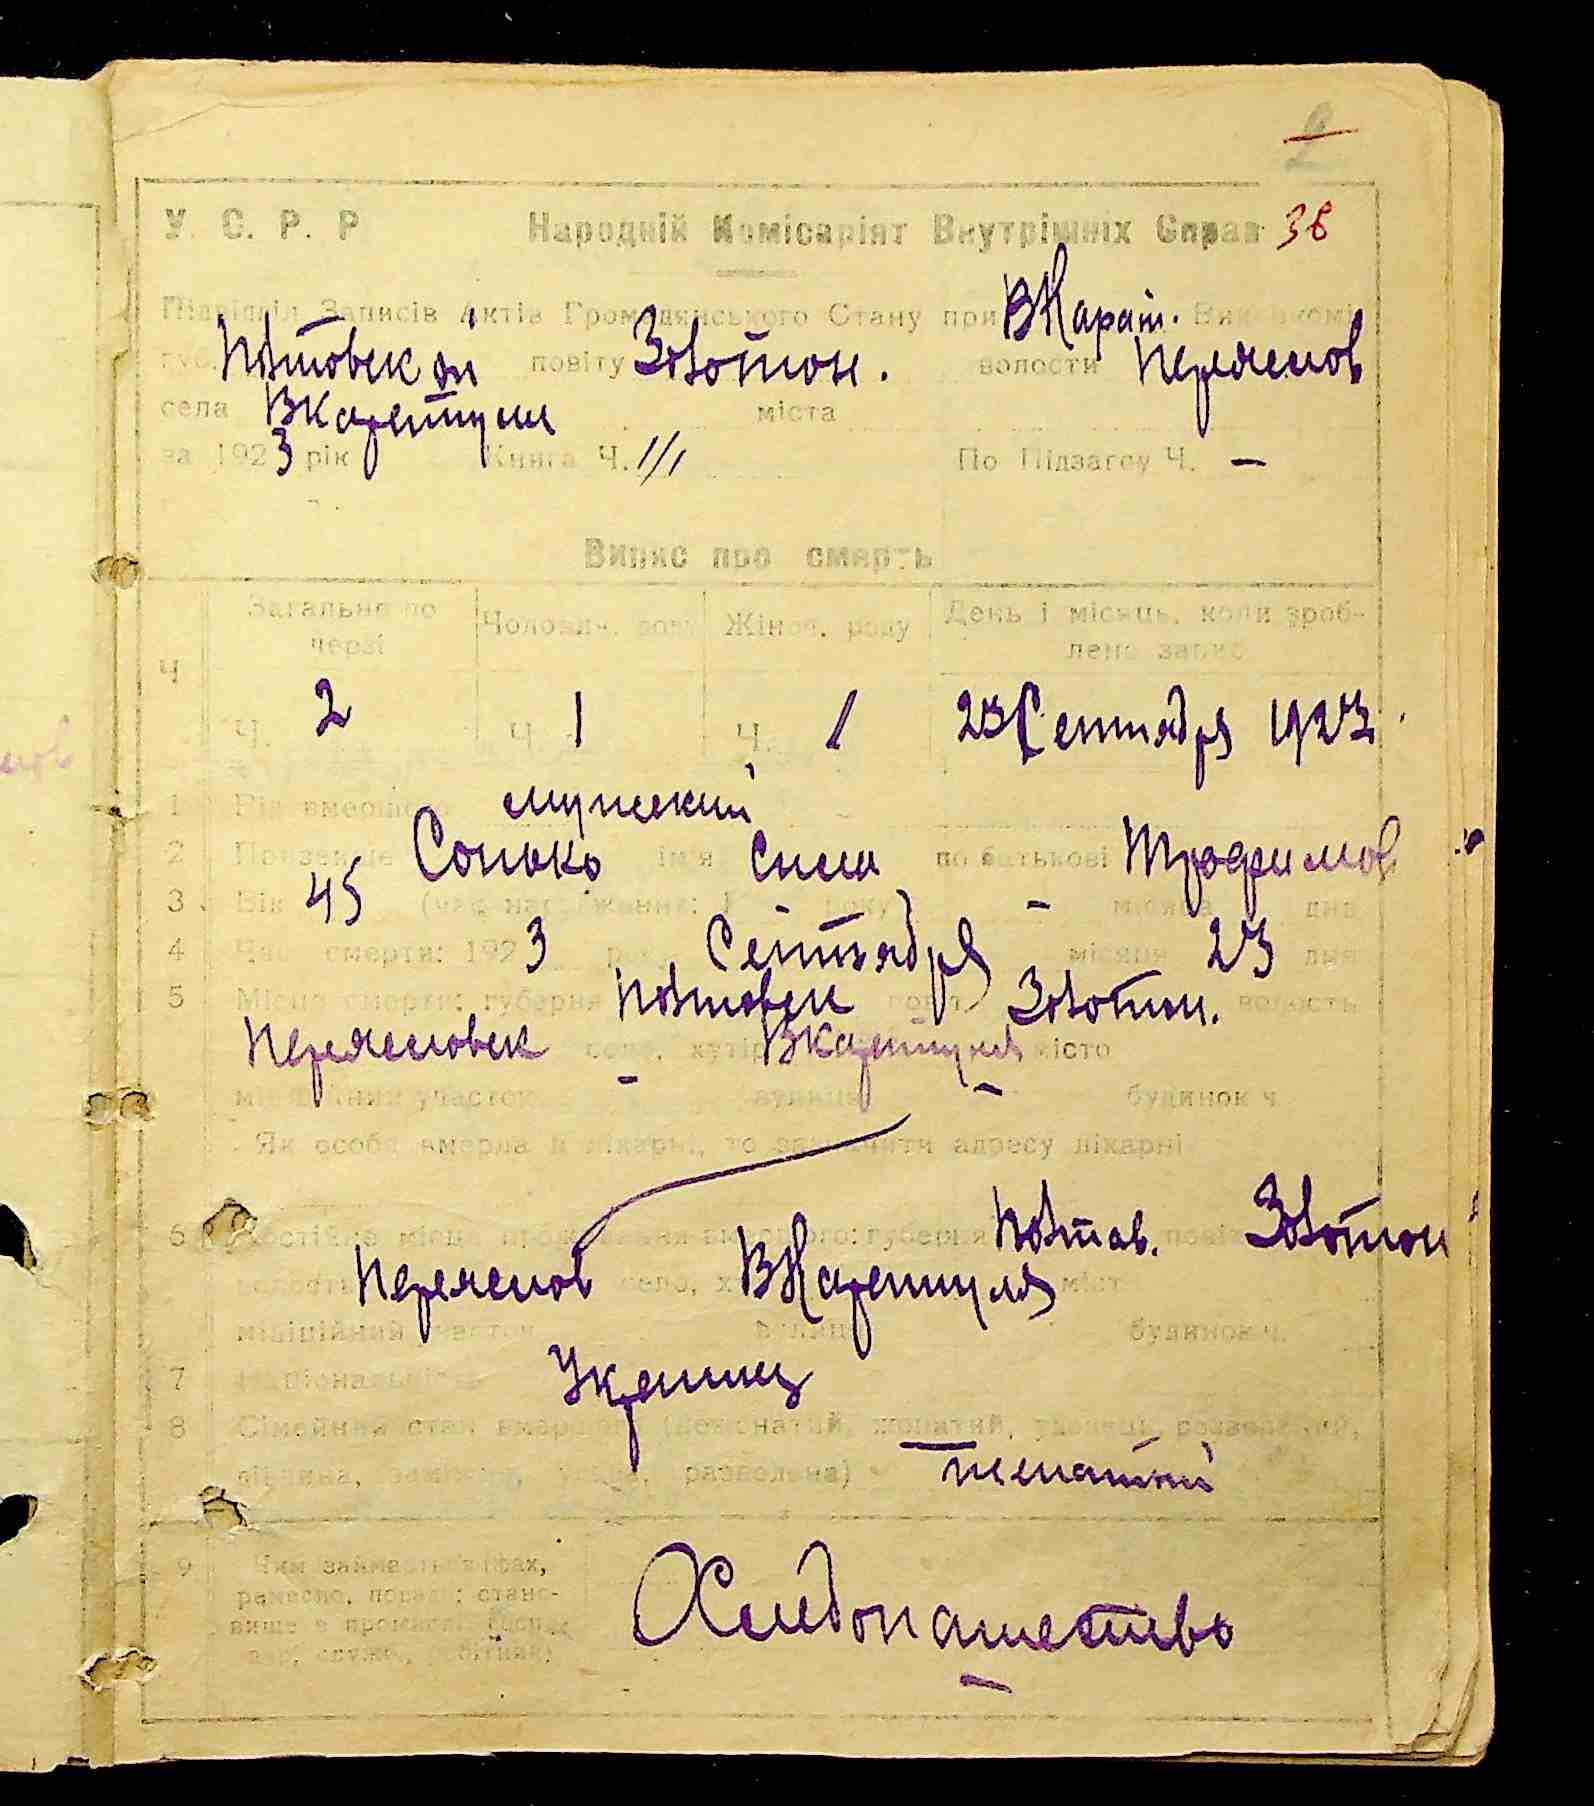 У. С. Р. Р Народній Комісаріят Внутрішніх Справ 38
Підвідділ Записів Актів Громадянського Стану при ВКарат. Виконкомі
губ. повіту Золотон. волости Переяслов
села ВКаратуля міста
за 1923 рік Книга Ч. 1/1 По Підзагсу Ч. —
Випис про смерть
Ч Загальне по черзі Чоловіч. роду Жіноч. роду День і місяць, коли зроблено запис
Ч. 2 Ч. 1 Ч. 1 23 Сентября 1923.
1 Пол вмершого мужский
2 Прізвище Сонько ім'я Сила по батькові Трофимов
3 Вік 45 (час народження: 1 року — місяця дня
4 Час смерти: 1923 року Сентября місяця 23 дня
5 Місце смерти: губерня Полтавск повіт Золотон. волость
Переясловск село, хутір ВКаратуля місто
міліційний участок — вулиця — будинок ч.
Як особа вмерла в лікарні, то зазначити адресу лікарні
6 Постійне місце проживання вмершого: губерня Полтав. повіт Золотон
волость Переяслов село, хутір ВКаратуля місто
міліційний участок вулиця будинок ч.
7 Національність Украинец
8 Сімейний стан вмершого (нежонатий, жонатий, удовець, розведений,
дівчина, замужня, удова, разведена) женатый
9 Чим займається: фах,
ремесло, посада; стано-
вище в промислі
Хлебопашество
—